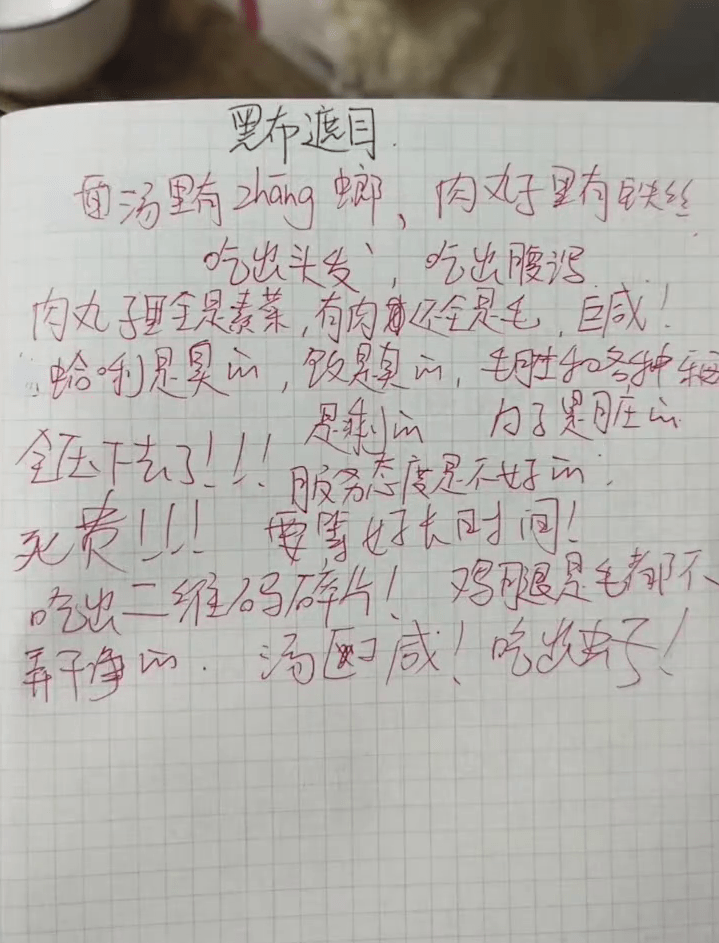 黑布遮目.
面汤里有zhāng螂、肉丸子里有铁丝
吃出头发、吃出腹泻
肉丸子里全是素菜,有肉还全是毛,巨咸!
蛤喇是臭的,饭是臭的,毛肚和各种
是剩的 勺子是脏的
全压下去了!!!
服务态度是不好的.
死费!!! 要等好长时间!
吃出二维码碎片! 鸡腿是毛都不
弄干净的. 汤巨咸! 吃出虫子!